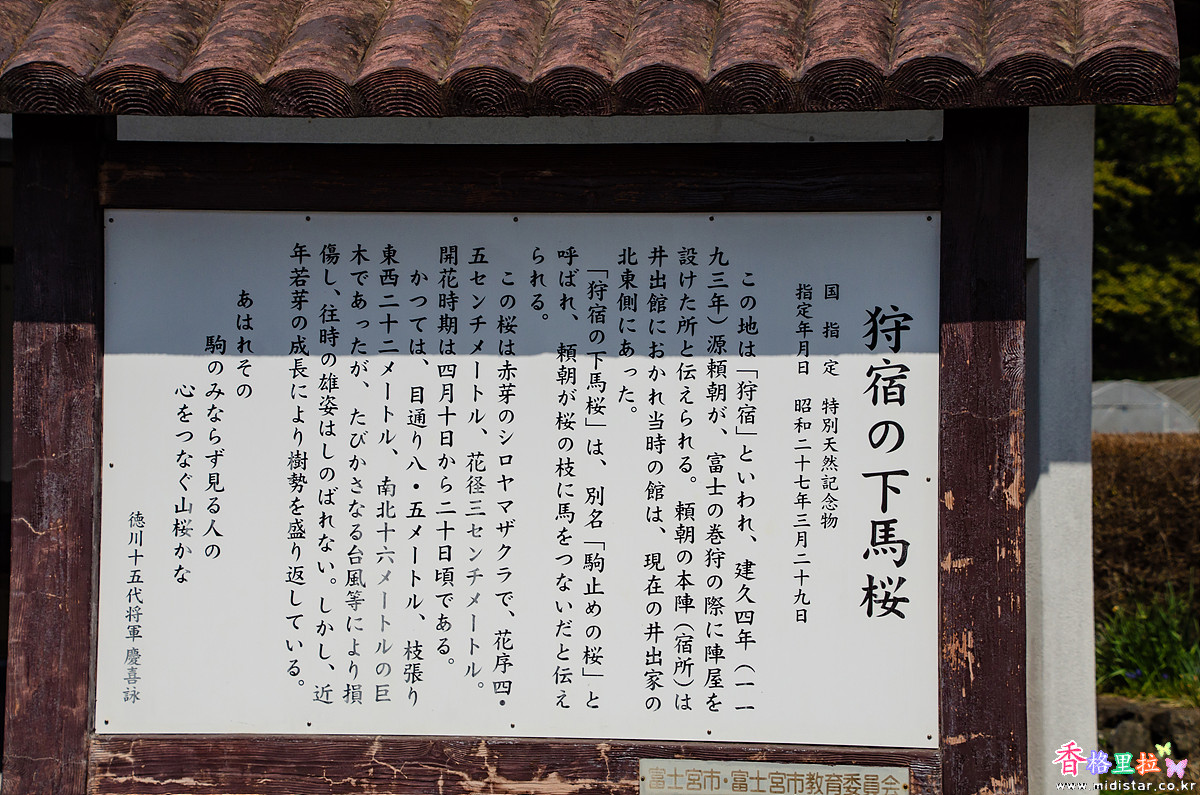 狩宿の下馬桜
国 指 定　特別天然記念物
指定年月日　昭和二十七年三月二十九日
この地は「狩宿」といわれ、建久四年（一一
九三年）源頼朝が、富士の巻狩の際に陣屋を
設けた所と伝えられる。頼朝の本陣（宿所）は
井出館におかれ当時の館は、現在の井出家の
北東側にあった。
「狩宿の下馬桜」は、別名「駒止めの桜」と
呼ばれ、頼朝が桜の枝に馬をつないだと伝え
られる。
この桜は赤芽のシロヤマザクラで、花序四・
五センチメートル、花径三センチメートル。
開花時期は四月十日から二十日頃である。
かつては、目通り八・五メートル、枝張り
東西二十二メートル、南北十六メートルの巨
木であったが、たびかさなる台風等により損
傷し、往時の雄姿はしのばれない。しかし、近
年若芽の成長により樹勢を盛り返している。
あはれその
駒のみならず見る人の
心をつなぐ山桜かな
徳川十五代将軍 慶喜詠
富士宮市・富士宮市教育委員会
香格里拉
www.midistar.co.kr